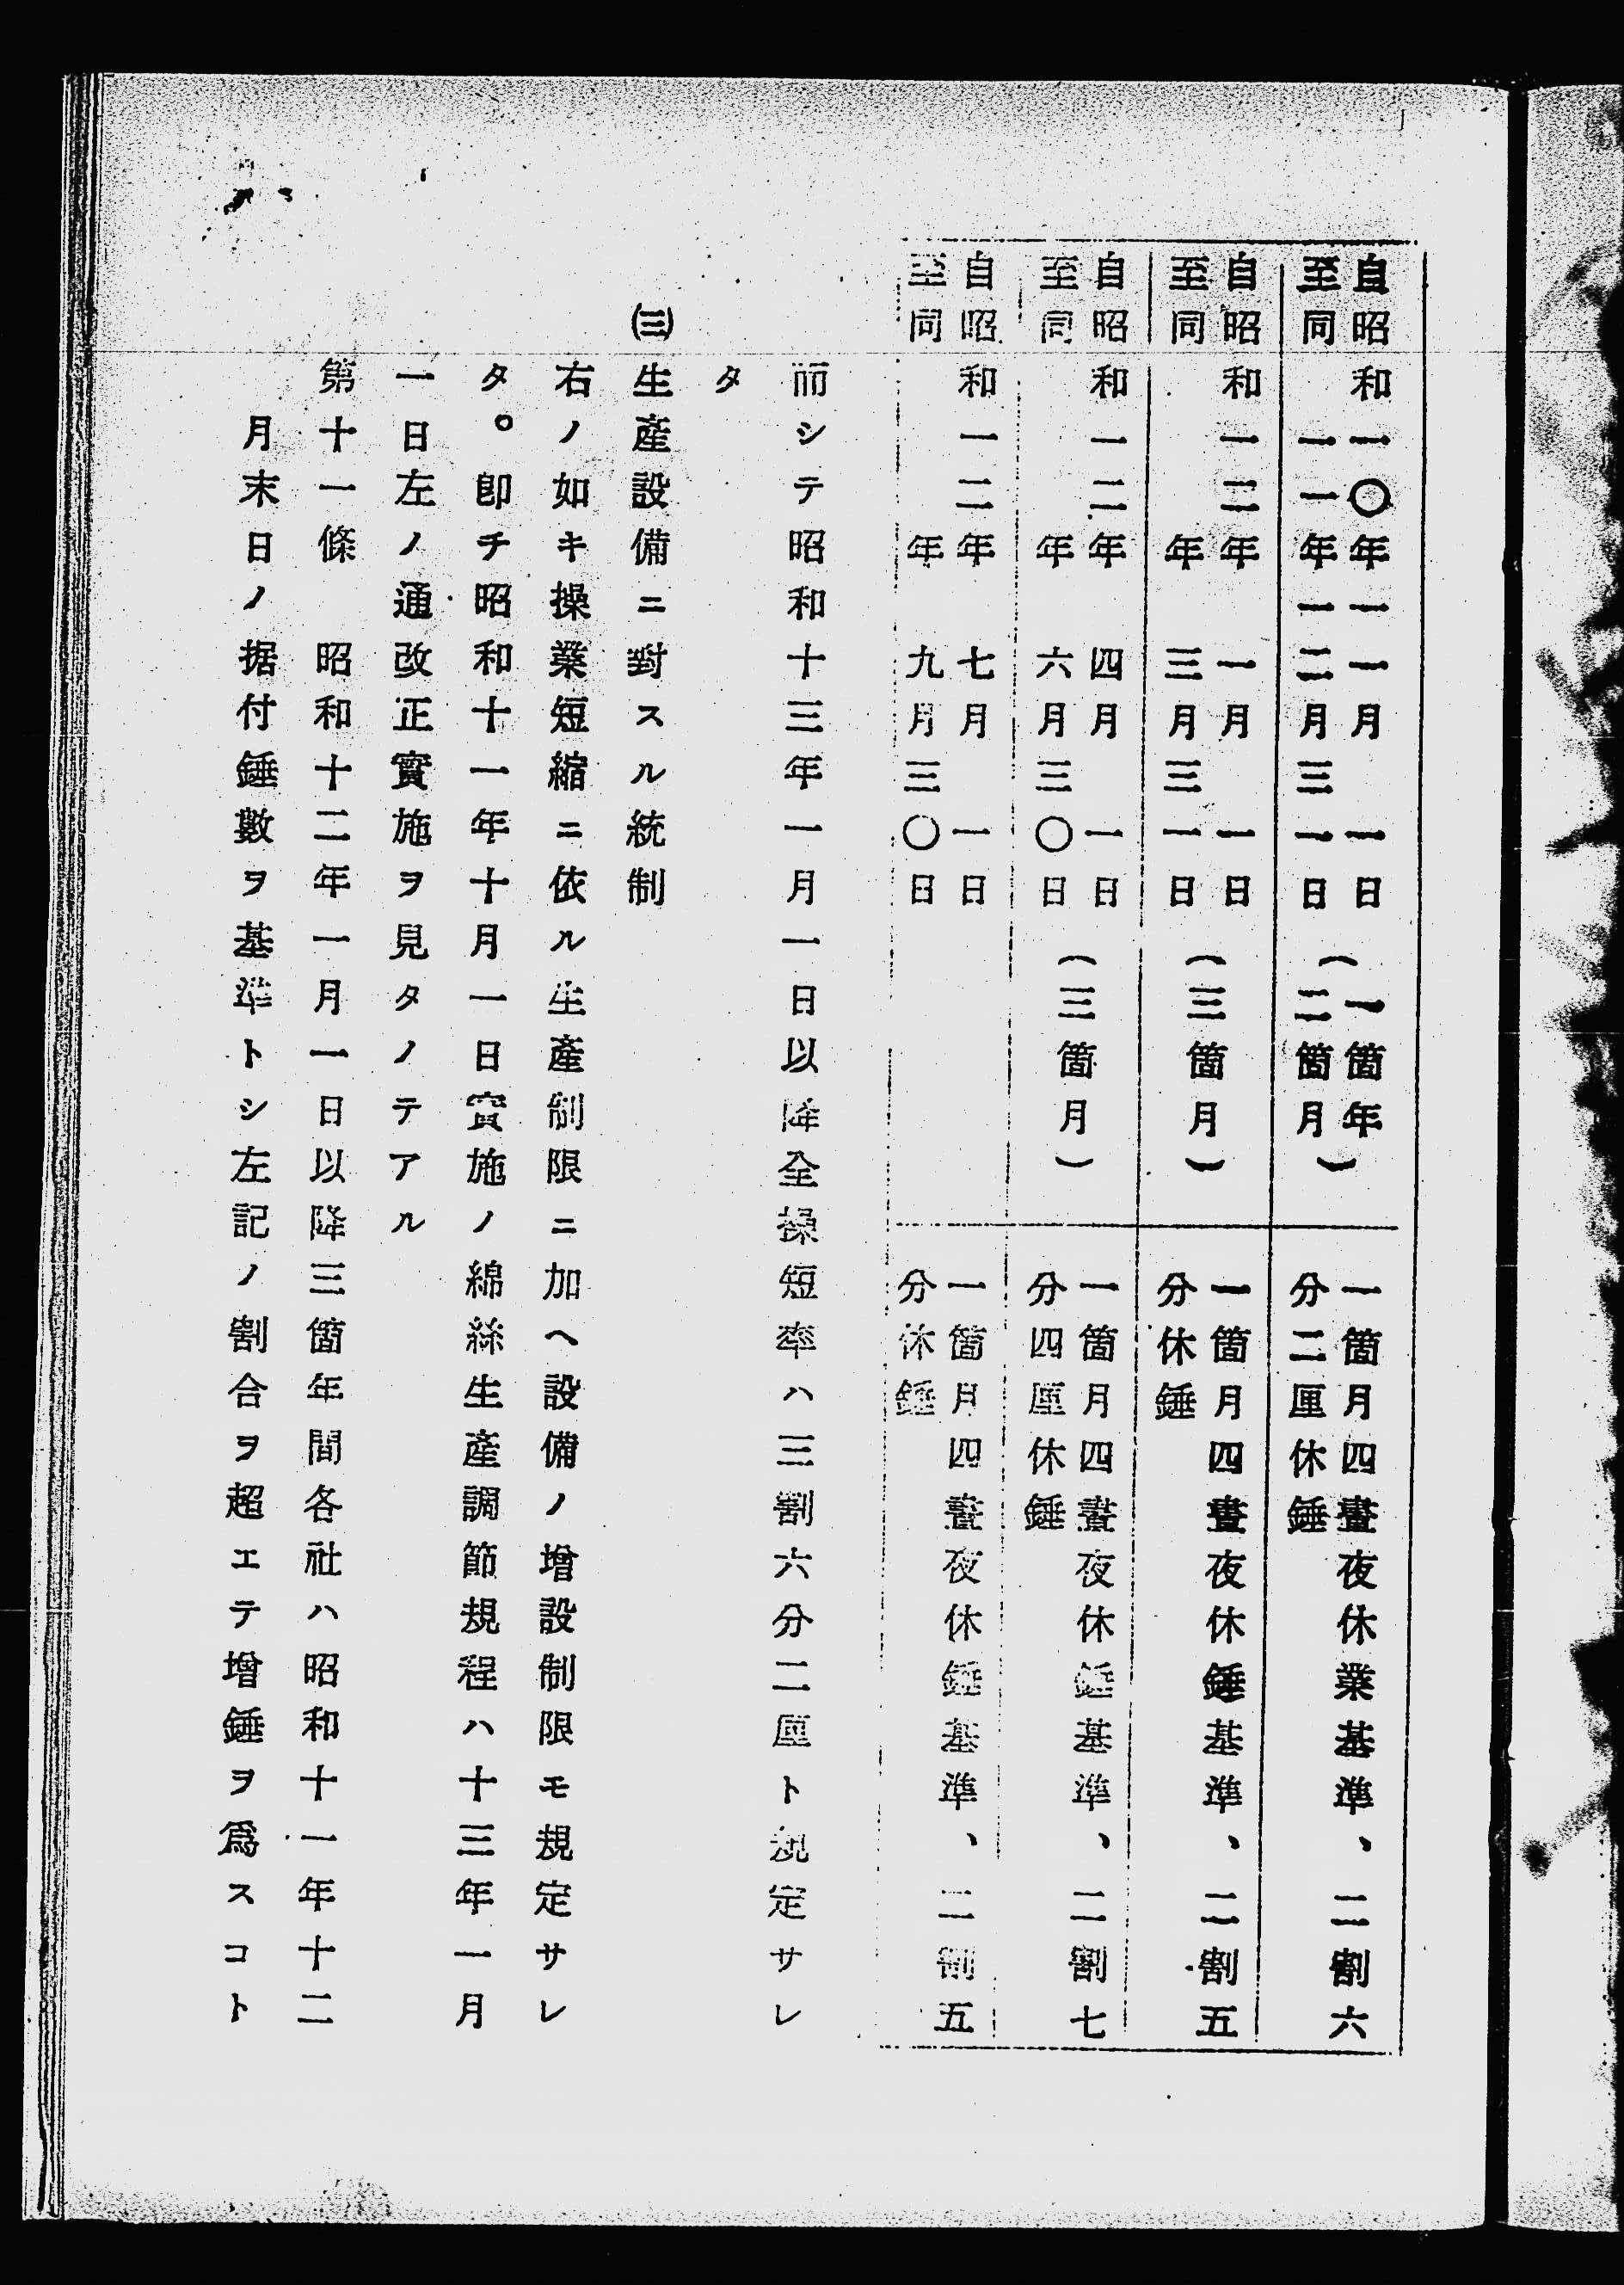 自昭和一〇年一一月一日
至同一一年一二月三一日
（一箇年
二箇月）
一箇月四晝夜休業基準、二割六
分二厘休錘
自昭和一二年一月一日
至同年三月三一日
（三箇月）
一箇月四晝夜休錘基準、二割五
分休錘
自昭和一二年四月一日
至同年六月三〇日
（三箇月）
一箇月四晝夜休錘基準、二割七
分四厘休錘
自昭和一二年七月一日
至同年九月三〇日
一箇月四晝夜休錘基準、二割五
分休錘
而シテ昭和十三年一月一日以降全操短率ハ三割六分二厘ト規定サレ
タ
㈢生產設備ニ對スル統制
右ノ如キ操業短縮ニ依ル生產制限ニ加ヘ設備ノ增設制限モ規定サレ
タ。卽チ昭和十一年十月一日實施ノ綿絲生產調節規程ハ十三年一月
一日左ノ通改正實施ヲ見タノテアル
第十一條　昭和十二年一月一日以降三箇年間各社ハ昭和十一年十二
月末日ノ据付錘數ヲ基準トシ左記ノ割合ヲ超エテ增錘ヲ爲スコト